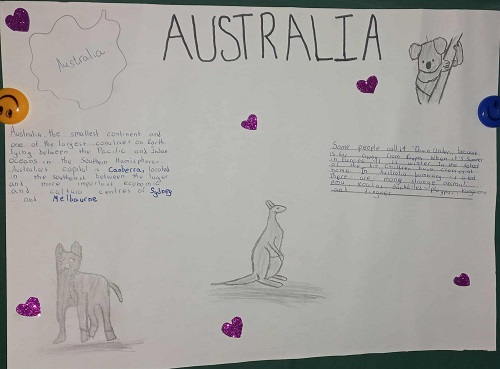 AUSTRALIA
Australia
Australia, the smallest continent and
one of the largest countries on Earth
lying between the Pacific and Indian
oceans in the Southern Hemisphere.
Australia's capital is Canberra, located
in the southeast between the larger
and more important economic
and culture centres of Sydney
and Melbourne
Some people call it "Down Under, because
is far away from Europe. When it's summer
in Europe, it is winter in
home. In Australia
there are many strange animal
emu, koalas, kangaroo
and dingoes